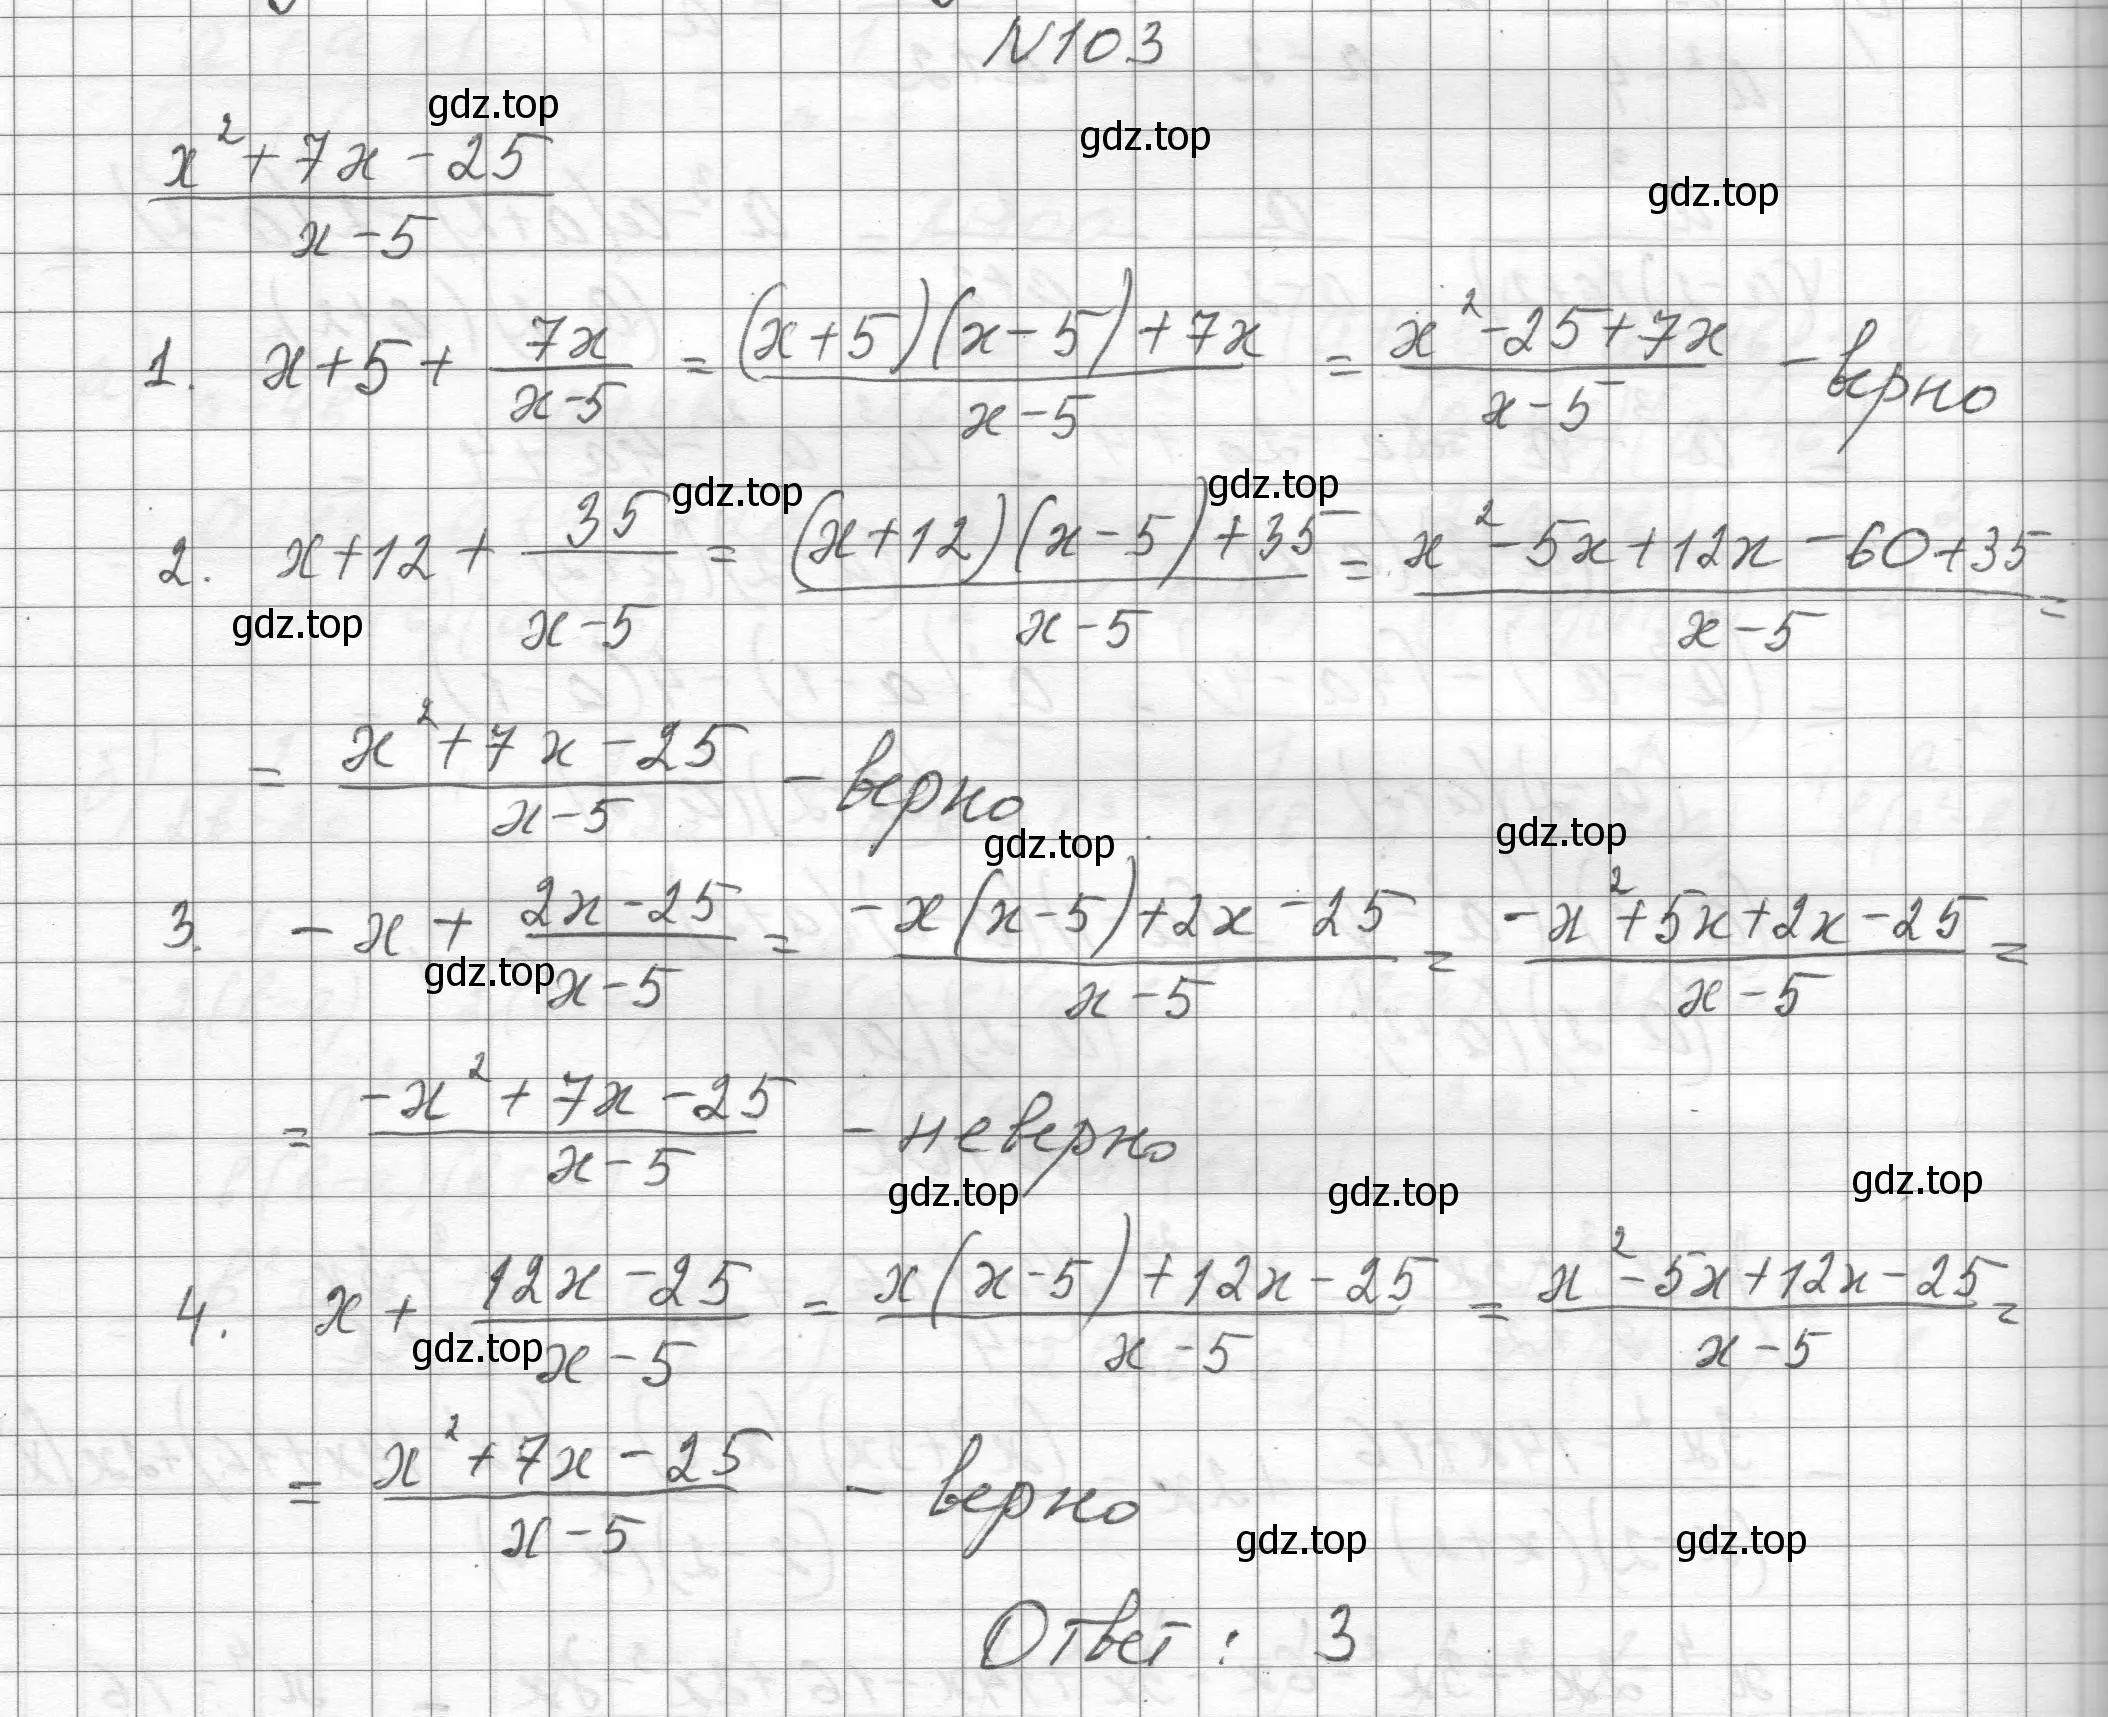 N103
gdz.top
gdz.top
gdz.top
(x²+7x-25)/(x-5)
1. x+5+7x/(x-5) = ((x+5)(x-5)+7x)/(x-5) = (x²-25+7x)/(x-5) - верно
gdz.top
gdz.top
2. x+12+35/(x-5) = ((x+12)(x-5)+35)/(x-5) = (x²-5x+12x-60+35)/(x-5) =
gdz.top
= (x²+7x-25)/(x-5) - верно
gdz.top
gdz.top
3. -x+(2x-25)/(x-5) = (-x(x-5)+2x-25)/(x-5) = (-x²+5x+2x-25)/(x-5) =
gdz.top
= (-x²+7x-25)/(x-5) - неверно
gdz.top
gdz.top
gdz.top
4. x+(12x-25)/(x-5) = (x(x-5)+12x-25)/(x-5) = (x²-5x+12x-25)/(x-5) =
gdz.top
= (x²+7x-25)/(x-5) - верно
gdz.top
gdz.top
Ответ: 3